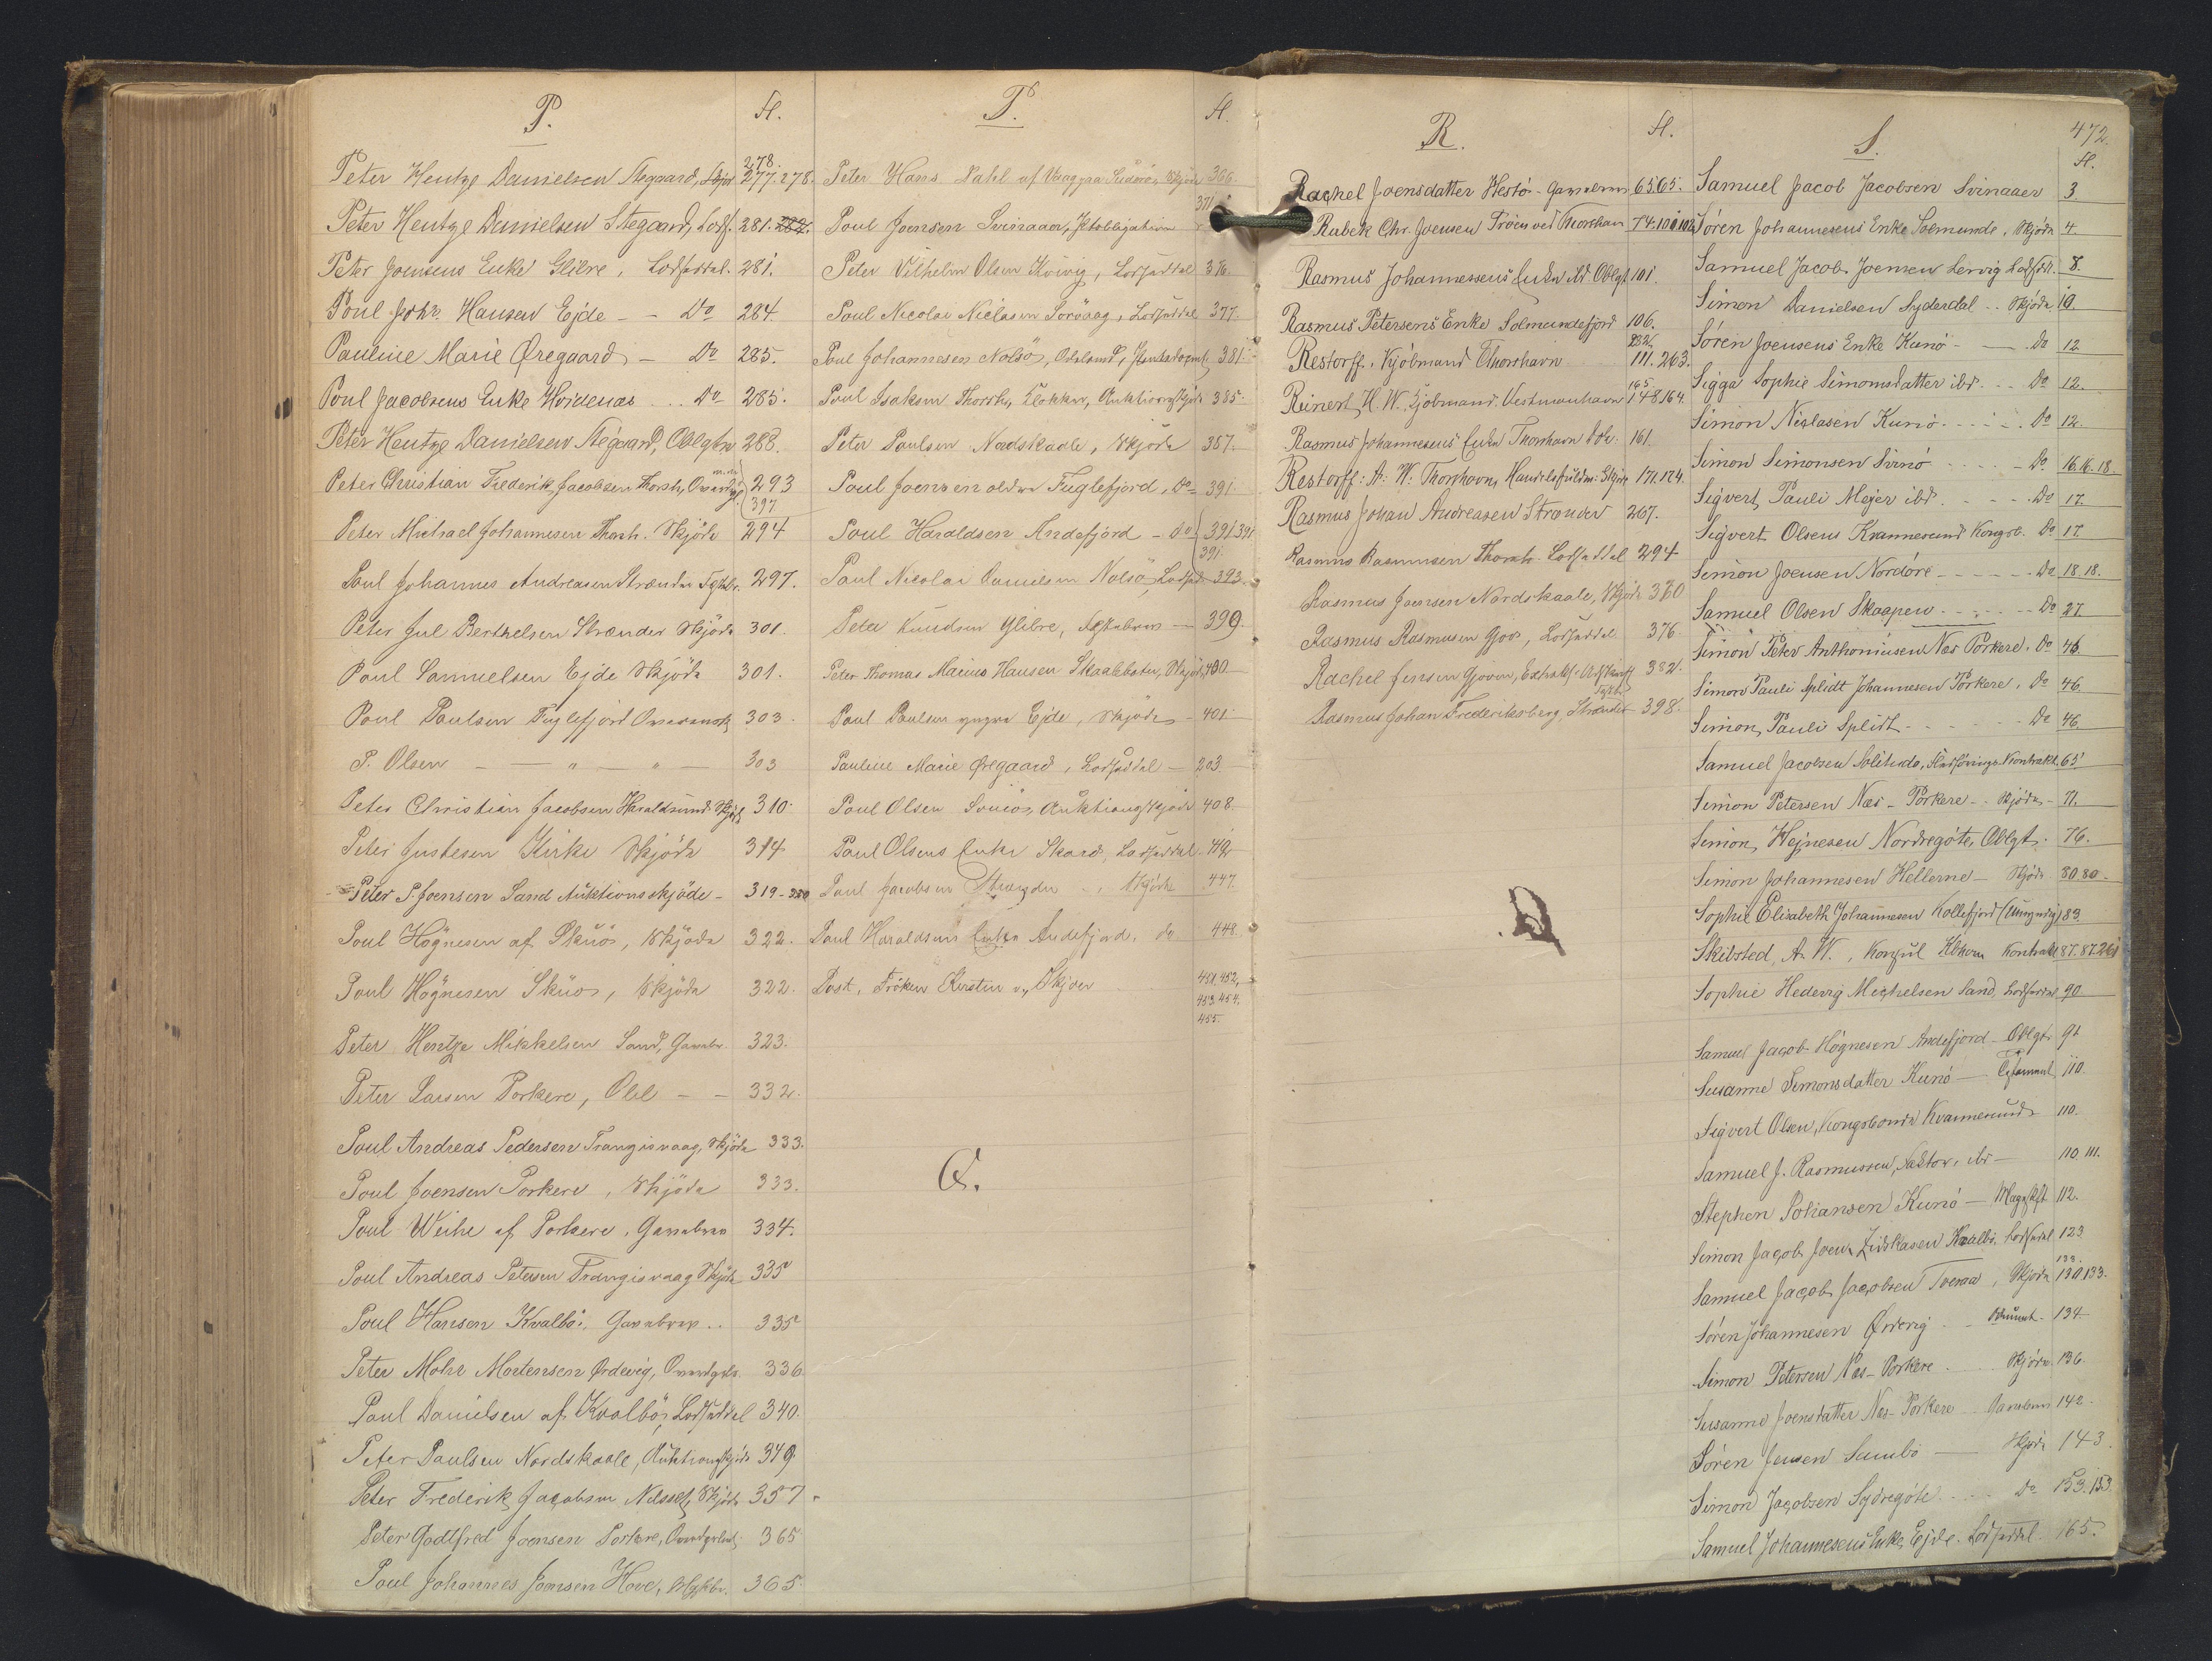 P.
H.
278.
Peter Hentze Danielsen Stegaard, Skjøde 277.278.
Peter Hentze Danielsen Stegaard, Lods. 281. 282.
Peter Joensens Enke Glibre, Lodseddel. 281.
Poul Johs. Hansen Ejde - - Do 284.
Pauline Marie Øregaard - Do 285.
Poul Jacobsens Enke Hvidenæs .. Do 285.
Peter Hentze Danielsen Stegaard, Oblgtn 288.
Peter Christian Frederik Jacobsen Thorsh, 293
397
Peter Michael Johannesen Thorsh. Skjöde 294
Poul Johannes Andreasen Strænder 297.
Peter Jul Berthelsen Strænder Skjöde 301.
Poul Samuelsen Ejde Skjöde 301.
Poul Poulsen Fuglefjord 303.
P. Olsen - - " - " - 303
Peter Christian Jacobsen Haraldsund Skjöde 310.
Peter Justesen Kirke Skjöde 314
Peter S. Joensen Sand Auktionsskjöde - 319-320
Poul Högnesen af Skuö, Skjöde 322.
Poul Högnesen Skuö, Skjöde 322.
Peter Hentze Mikkelsen Sand, Gavebr. 323.
Peter Larsen Porkere, Obl - - 332.
Poul Andreas Pedersen Trangisvaag, Skjöde 333.
Poul Joensen Porkere, Skjöde 333.
Poul Weihe af Porkere, Gavebrev 334.
Poul Andreas Petersen Trangisvaag Skjöde 335
Poul Hansen Kvalbö, Gavebrev .. 335
Peter Mohr Mortensen Ördevig, 336.
Poul Danielsen af Kvalbö, Lodseddel 340.
Peter Poulsen Nordskaale, Auktionsskjöde 349
Peter Frederik Jacobsen Skjöde 357.
Peter Godtfred Joensen Porkere, 365
Poul Johannes Joensen Hove, 365.
P.
H.
Peter Hans Dahl af Vaag paa Suderö, Skjöde 366
371
Poul Joensen Svinaaer,
Peter Vilhelm Olsen Kvivig, Lodseddel 376.
Poul Nicolai Niclasen Sörvaag, Lodseddel 377.
Poul Johannesen Nolsö, 381.
Poul Isaksen Thorsh, Klokker, Auktionsskjöde 385.
Peter Poulsen Nordskaale, Skjöde 387.
Poul Joensen ældre Fuglefjord, Do 391.
Poul Haraldsen Andefjord - Do 391 391
391.
Poul Nicolai Danielsen Nolsö, Lodsed 393.
Peter Knudsen Glibre, - 399.
Peter Thomas Marius Hansen Skaalebotn, Skjöde 400
Poul Poulsen yngre Ejde, Skjöde - 401.
Pauline Marie Øregaard, Lodseddel - 203.
Poul Olsen Auktionsskjöde 408.
Poul Olsens Enke Skaard, Lodseddel.
Poul Jacobsen Strænder .. Skjöde 447.
Poul Haraldsens Enke Andefjord, do 448.
Post, Fröken Kirstin v, Skjöder .. 451, 452,
453. 454.
455.
Q.
R.
H.
Rachel Joensdatter Gavebrev 65 65.
Rubek Chr. Joensen Tröen ved Thorshavn 74. 101. 102
Rasmus Johannessens Enke Oblgt 101.
Rasmus Petersens Enke Solmundefjord 106.
Restorff, Kjöbmand Thorshavn 111. 263.
165.
Reinert H. W., Kjöbmand, Vestmanhavn 148 164.
Rasmus Johannesens Enke Thorshavn 161.
Restorff: A: W: Thorshavn, 171. 174.
Rasmus Johan Andreasen Strænder 267.
Rasmus Rasmussen Thorsh Lodseddel 294
Rasmus Joensen Nordskaale, Skjöde 360
Rasmus Rasmussen Gjov, Lodseddel. 376.
Rachel Jensen Gjoven, 382.
Rasmus Johan Frederiksberg, Strænder 398.
Q
472.
S.
H.
Samuel Jacob Jacobsen Svinaaer 3.
Søren Johannesens Enke Solmunde, Skjöde 4.
Samuel Jacob Joensen Lervig Lodsedl. 8.
Simon Danielsen Syderdal .. Skjöde 10.
Søren Joensens Enke Kunö - - Do 12.
Sigga Sophie Simonsdatter ibd. .. Do 12.
Simon Niclasen Kunö - - - - Do 12.
Simon Simonsen Svinö - - - Do 16. 16. 18.
Sigvert Pauli Mejer ibd. - - - Do 17.
Sigvert Olsens Kvannesund Kongsb. Do 17.
Simon Joensen Nordöre - - - - Do 18. 18.
Samuel Olsen Skaapen - - - - Do 27.
Simon Peter Anthoniusen Næs Porkere. Do 45.
Simon Pauli Splidt Johannesen Porkere, Do 46.
Simon, Pauli Splidt - - - - Do 46.
Samuel Jacobsen Solitude, Kontrakt 65.
Simon Petersen Næs - Porkere - Skjöde - 71.
Simon Hejnesen Nordregöte, Oblgt. 76.
Simon Johannesen Hellerne - Skjöde 80 80 -
Sophie Elisabeth Johannesen Kollefjord (Umyndig) 83.
Skibsted, A. W., Konsul Kbhavn Kontrakt 87. 87. 261
Sophie Hedevig Michelsen Sand, Lodseddel 90
Samuel Jacob Högnesen Andefjord - Oblgt 91
Susanne Simonsdatter Kunö - 110.
Sigvert Olsen, Kongsbonde Kvannesund 110.
Samuel J. Rasmussen, ibd - 110 111.
Stephen Johansen Kunö - 112.
Simon Jacob Joen Zidskasen Kvalbö, Lodseddel 123.
133.
Samuel Jacob Jacobsen Tveraa, Skjöde 130. 133.
Søren Johannesen Ørdevig .. 134.
Simon Petersen Næs - Porkere. .. Skjöde 136.
Susanne Joensdatter Næs - Porkere .. Gavebrev 142.
Søren Jensen Sumbö - Skjöde 143.
Simon Jacobsen Sydregöte .. Do 153. 153.
Samuel Johannesens Enke, Ejde. Lodseddel. 165.